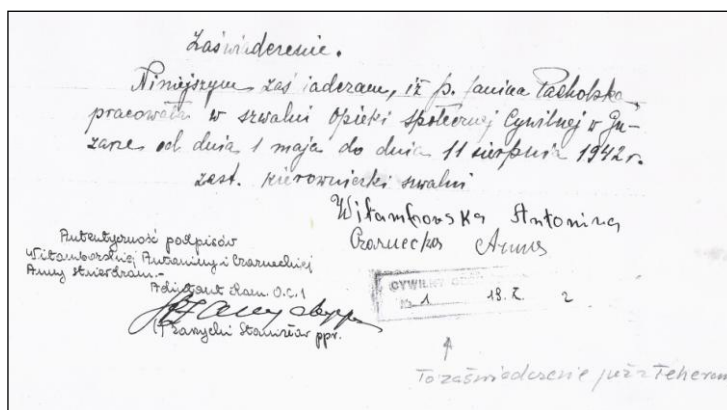 Zaświadczenie.
Niniejszym zaświadczam, iż p. Janina Pacholska,
pracowała w szwalni Opieki Społecznej Cywilnej w Gu-
zarze od dnia 1 maja do dnia 11 sierpnia 1942 r.
zast. kierowniczki szwalni
Witamborska Antonina
Czarnecka Anna
Autentyczność podpisów
Witamborskiej Antoniny i Czarneckiej
Anny stwierdzam.-
Adjutant Kom. O.C.1
Stanisław ppr.
CYWILNY
1 19. X. 2
To zaświadczenie już z Teheranu